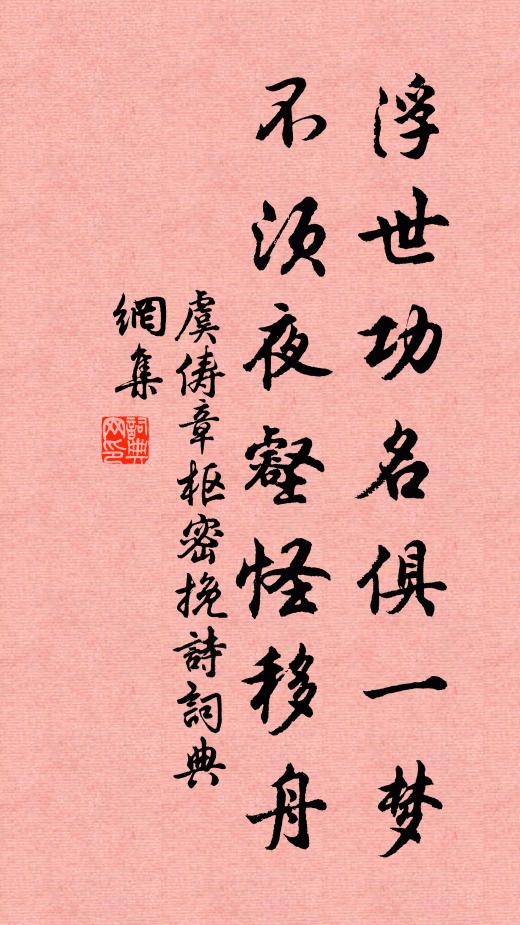 浮世功名俱一梦
不须夜壑怪移舟
虞俦章枢密挽詩詞典
網集
詞典
网印